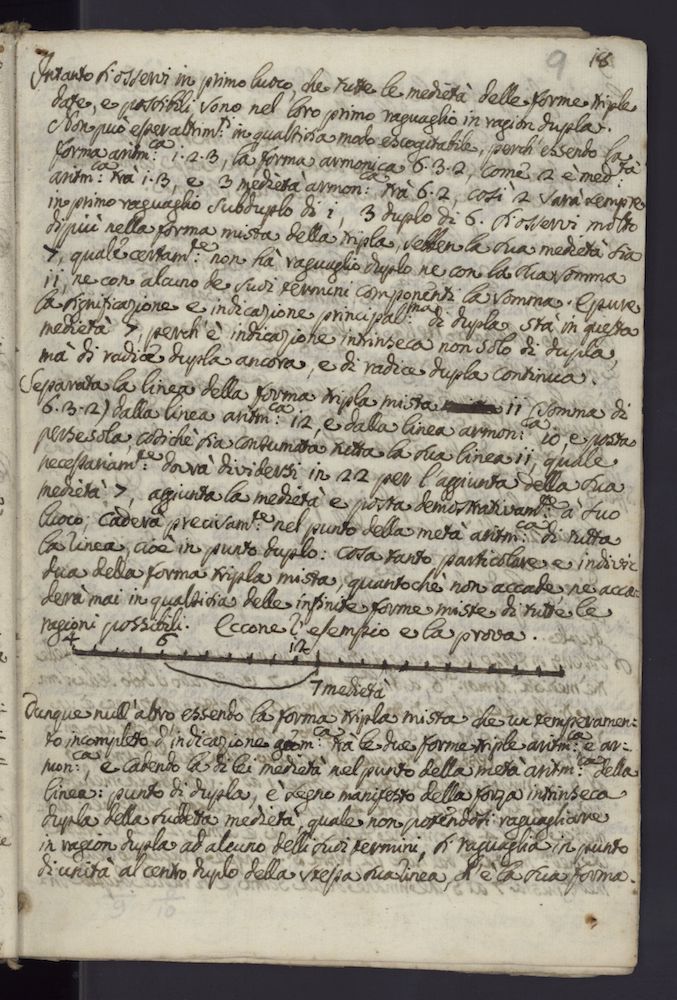 9 18
Intanto si osservi in primo luoco, che tutte le medietà delle forme triple
date, e possibili sono nel loro primo raguaglio in ragion dupla.
Non può esser altrim.te in qualsisia modo escogitabile, perch'essendo la
forma aritm.ca 1·2·3, la forma armonica 6·3·2, come 2 e med.tà
aritm.ca trà 1·3, e 3 medietà armon.ca trà 6·2, così 2 sarà sempre
in primo raguaglio subduplo di 1, 3 duplo di 6. Si osservi molto
di più nella forma mista della tripla, sebben la sua medietà sia
7, quale certam.te non hà raguaglio duplo ne con la sua somma
11, ne con alcuno de suoi termini componenti la somma. Eppure
la significazione e indicazione principal.ma di dupla stà in questa
medietà 7, perch'è indicazione intrinseca non solo di dupla,
mà di radice dupla ancora, e di radice dupla continua.
Separata la linea della forma tripla mista 11 (somma di
6·3·2) dalla linea aritm.ca 12, e dalla linea armon.ca 10, e posta
per se sola, cosichè sia consumata tutta la sua linea 11, quale
necessariam.te dovrà dividersi in 22 per l'aggiunta della sua
medietà 7, aggiunta la medietà e posta demostrativam.te à suo
luoco; caderà precisam.te nel punto della metà aritm.ca di tutta
la linea, cioè in punto duplo: cosa tanto particolare e indivi-
dua della forma tripla mista, quanto che non accade, ne acca-
derà mai in qualsisia delle infinite forme miste di tutte le
ragioni possibili. Eccone l'esempio e la prova.
4 6 12
7 medietà
Dunque null'altro essendo la forma tripla mista che un temperamen-
to incompleto d'indicazione geom.ca tra le due forme triple aritm.ca e ar-
mon.ca, e cadendo la di lei medietà nel punto della metà aritm.ca della
linea: punto di dupla, è segno manifesto della forza intrinseca
dupla della sudetta medietà, quale non potendosi raguagliare
in ragion dupla ad alcuno delli suoi termini, si raguaglia in punto
di unità al centro duplo della stessa sua linea, ch'è la sua forma.